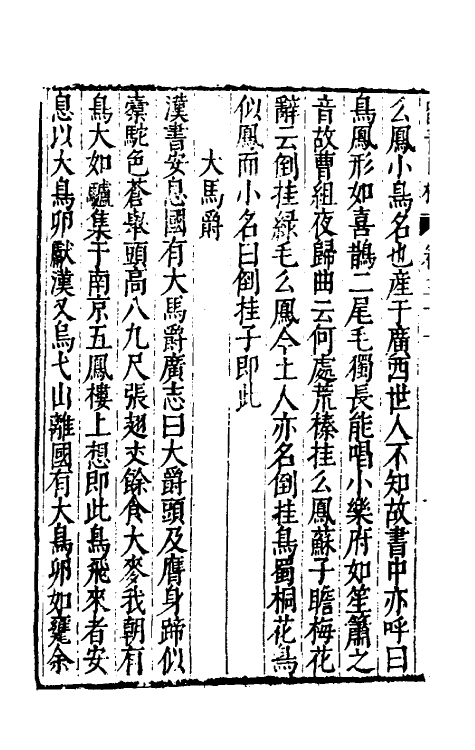 么鳳小鳥名也産于廣西世人不知故書中亦呼曰
鳥鳳形如喜鵲二尾毛獨長能唱小樂府如笙簫之
音故曹組夜歸曲云何處荒榛挂么鳳蘇子瞻梅花
辭云倒挂緑毛么鳳今土人亦名倒挂鳥蜀桐花鳥
似鳳而小名曰倒挂子即此
大馬爵
漢書安息國有大馬爵廣志曰大爵頭及膺身蹄似
橐駝色蒼舉頭高八九尺張翅丈餘食大麥我朝有
鳥大如驢集于南京五鳳樓上想即此鳥飛來者安
息以大鳥卵獻漢又烏弋山離國有大鳥卵如甕余